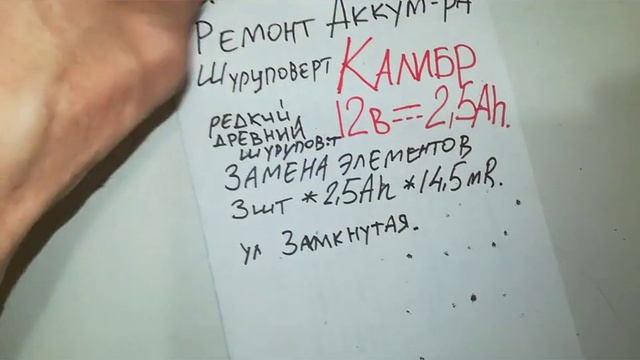 Ремонт Аккум-ра
Шуруповерт Калибр
12в=2,5Ah.
редкий
древний
шуруповт
Замена элементов
3шт*2,5Ah*14,5mR.
ул Замкнутая.